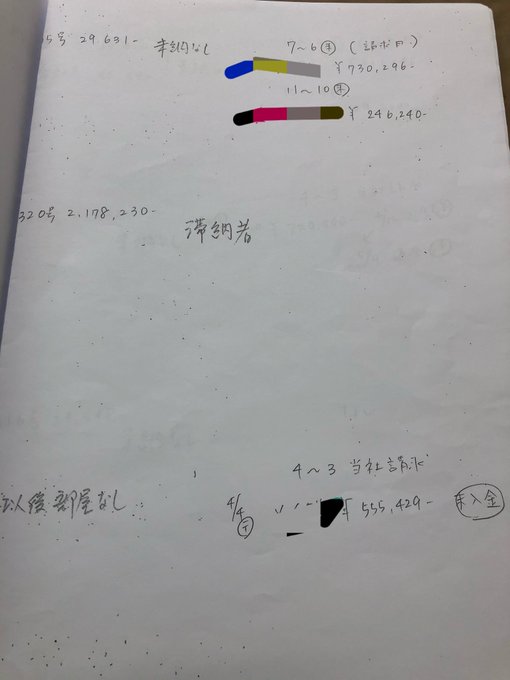 5号 29.631- 未納なし
7～6㊍ (請求月)
¥730,296-
11～10㊍
¥ 246,240-
320号 2,178,230-
滞納者
4～3 当社請求
以後部屋なし
4/4 〃 ¥ 555,429- 未入金